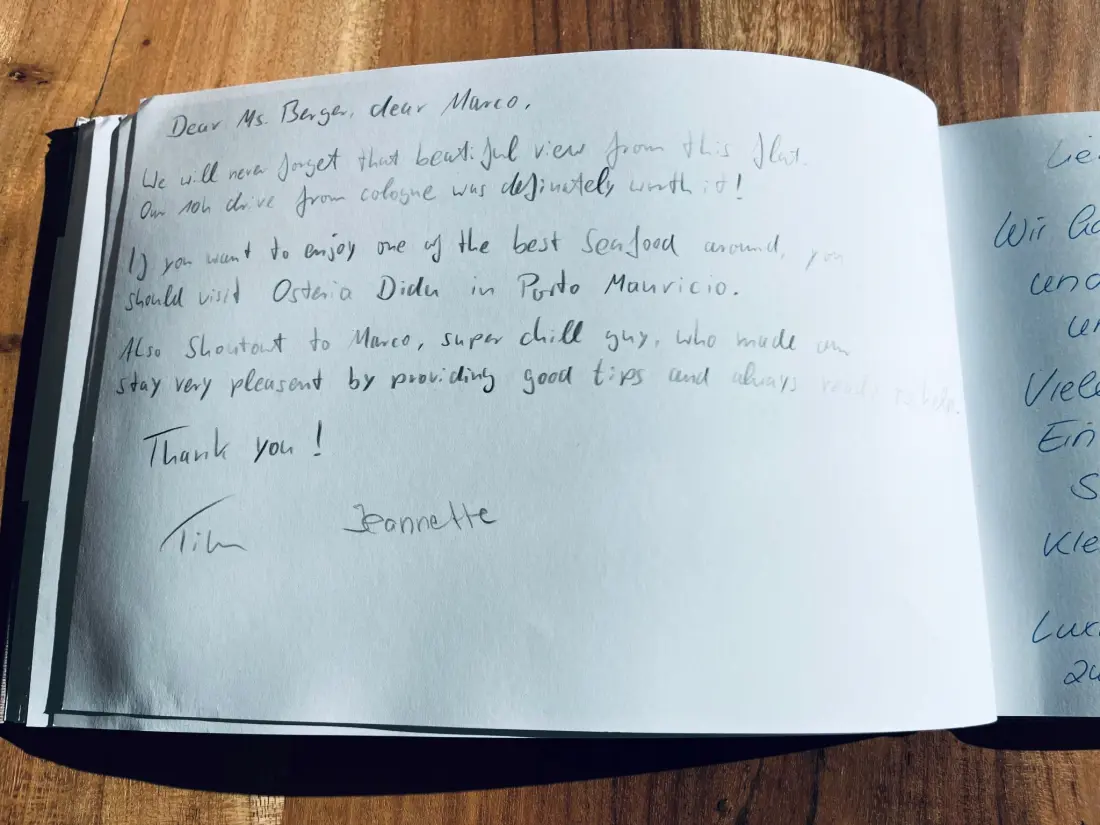 Dear Ms. Berger, dear Marco,
We will never forget that beatiful view from this flat.
Our 10h drive from cologne was definately worth it!
If you want to enjoy one of the best Seafood around, you
should visit Osteria Didu in Porto Mauricio.
Also Shoutout to Marco, super chill guy, who made our
stay very pleasent by providing good tips and always
Thank you!
Tim Jeannette
Lie
Wir
und
Viele
Ein
S
Kle